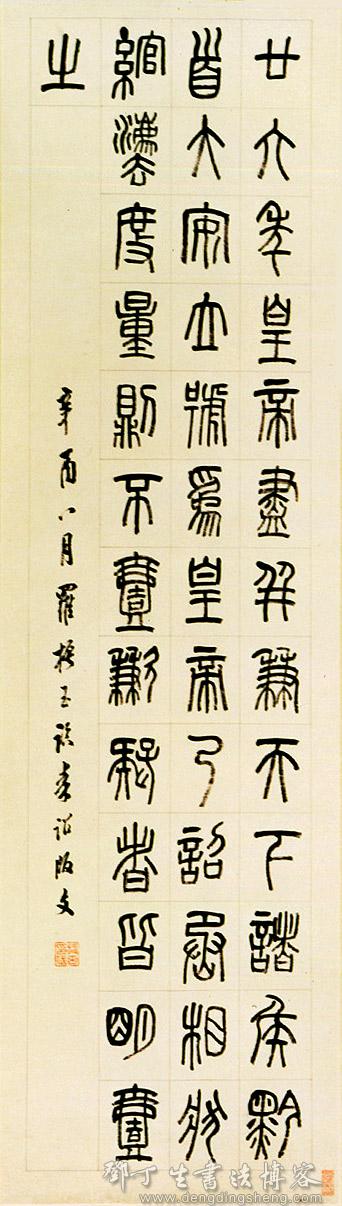 廿六年皇帝盡并兼天下諸侯黔
首大安立號為皇帝乃詔丞相狀
綰灋度量則不壹歉疑者皆明壹
之
辛酉八月羅振玉臨秦詔版文
鄧丁生書法博客
www.dengdingsheng.com